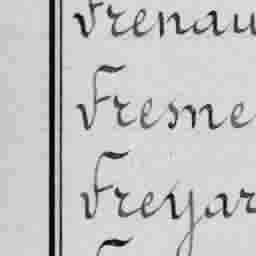 Frenau
Fresne
Freyar